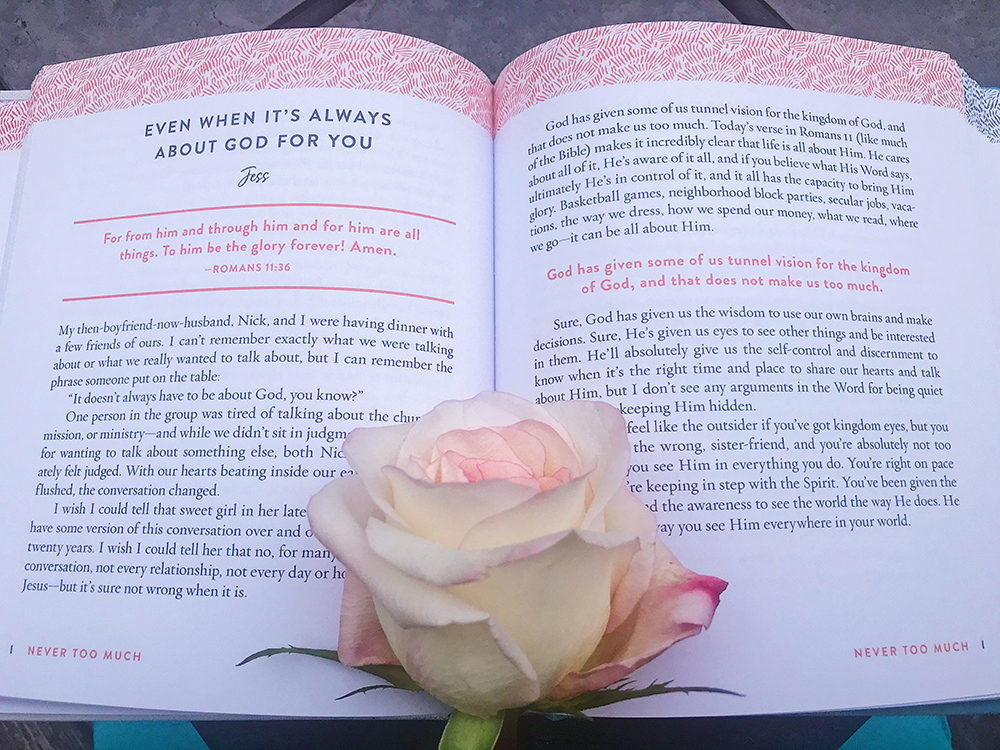 EVEN WHEN IT'S ALWAYS
ABOUT GOD FOR YOU
Jess
For from him and through him and for him are all
things. To him be the glory forever! Amen.
—ROMANS 11:36
My then-boyfriend-now-husband, Nick, and I were having dinner with
a few friends of ours. I can't remember exactly what we were talking
about or what we really wanted to talk about, but I can remember the
phrase someone put on the table:
"It doesn't always have to be about God, you know?"
One person in the group was tired of talking about the
mission, or ministry—and while we didn't sit in
for wanting to talk about something else, both
ately felt judged. With our hearts beating inside our
flushed, the conversation changed.
I wish I could tell that sweet girl in her
have some version of this conversation over and
twenty years. I wish I could tell her that no, for
conversation, not every relationship, not every day or
Jesus—but it's sure not wrong when it is.
| NEVER TOO MUCH
God has given some of us tunnel vision for the kingdom of God, and
that does not make us too much. Today's verse in Romans 11 (like much
of the Bible) makes it incredibly clear that life is all about Him. He cares
about all of it, He's aware of it all, and if you believe what His Word says,
ultimately He's in control of it, and it all has the capacity to bring Him
glory. Basketball games, neighborhood block parties, secular jobs, vaca-
tions, the way we dress, how we spend our money, what we read, where
we go—it can be all about Him.
God has given some of us tunnel vision for the kingdom
of God, and that does not make us too much.
Sure, God has given us the wisdom to use our own brains and make
decisions. Sure, He's given us eyes to see other things and be interested
in them. He'll absolutely give us the self-control and discernment to
know when it's the right time and place to share our hearts and talk
about Him, but I don't see any arguments in the Word for being quiet
keeping Him hidden.
feel like the outsider if you've got kingdom eyes, but you
the wrong, sister-friend, and you're absolutely not too
you see Him in everything you do. You're right on pace
keeping in step with the Spirit. You've been given the
and the awareness to see the world the way He does. He
way you see Him everywhere in your world.
NEVER TOO MUCH |